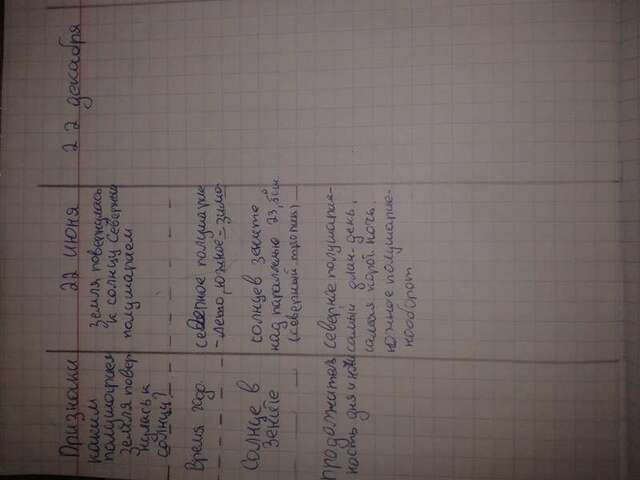 Признаки
каким
полушарием
земля повер
нулась к
солнцу?
22 июня
земля повернулась
к солнцу Северным
полушарием
22 декабря
Время год.
северное полушарие
- лето, южное - зима
Солнце в
зените
солнце в зените
над параллелью 23,5° с.ш.
(северный тропик)
продолжитель
ность дня и ночи
северное полушарие-
самый длин. день,
самая корот. ночь.
южное полушарие-
наоборот